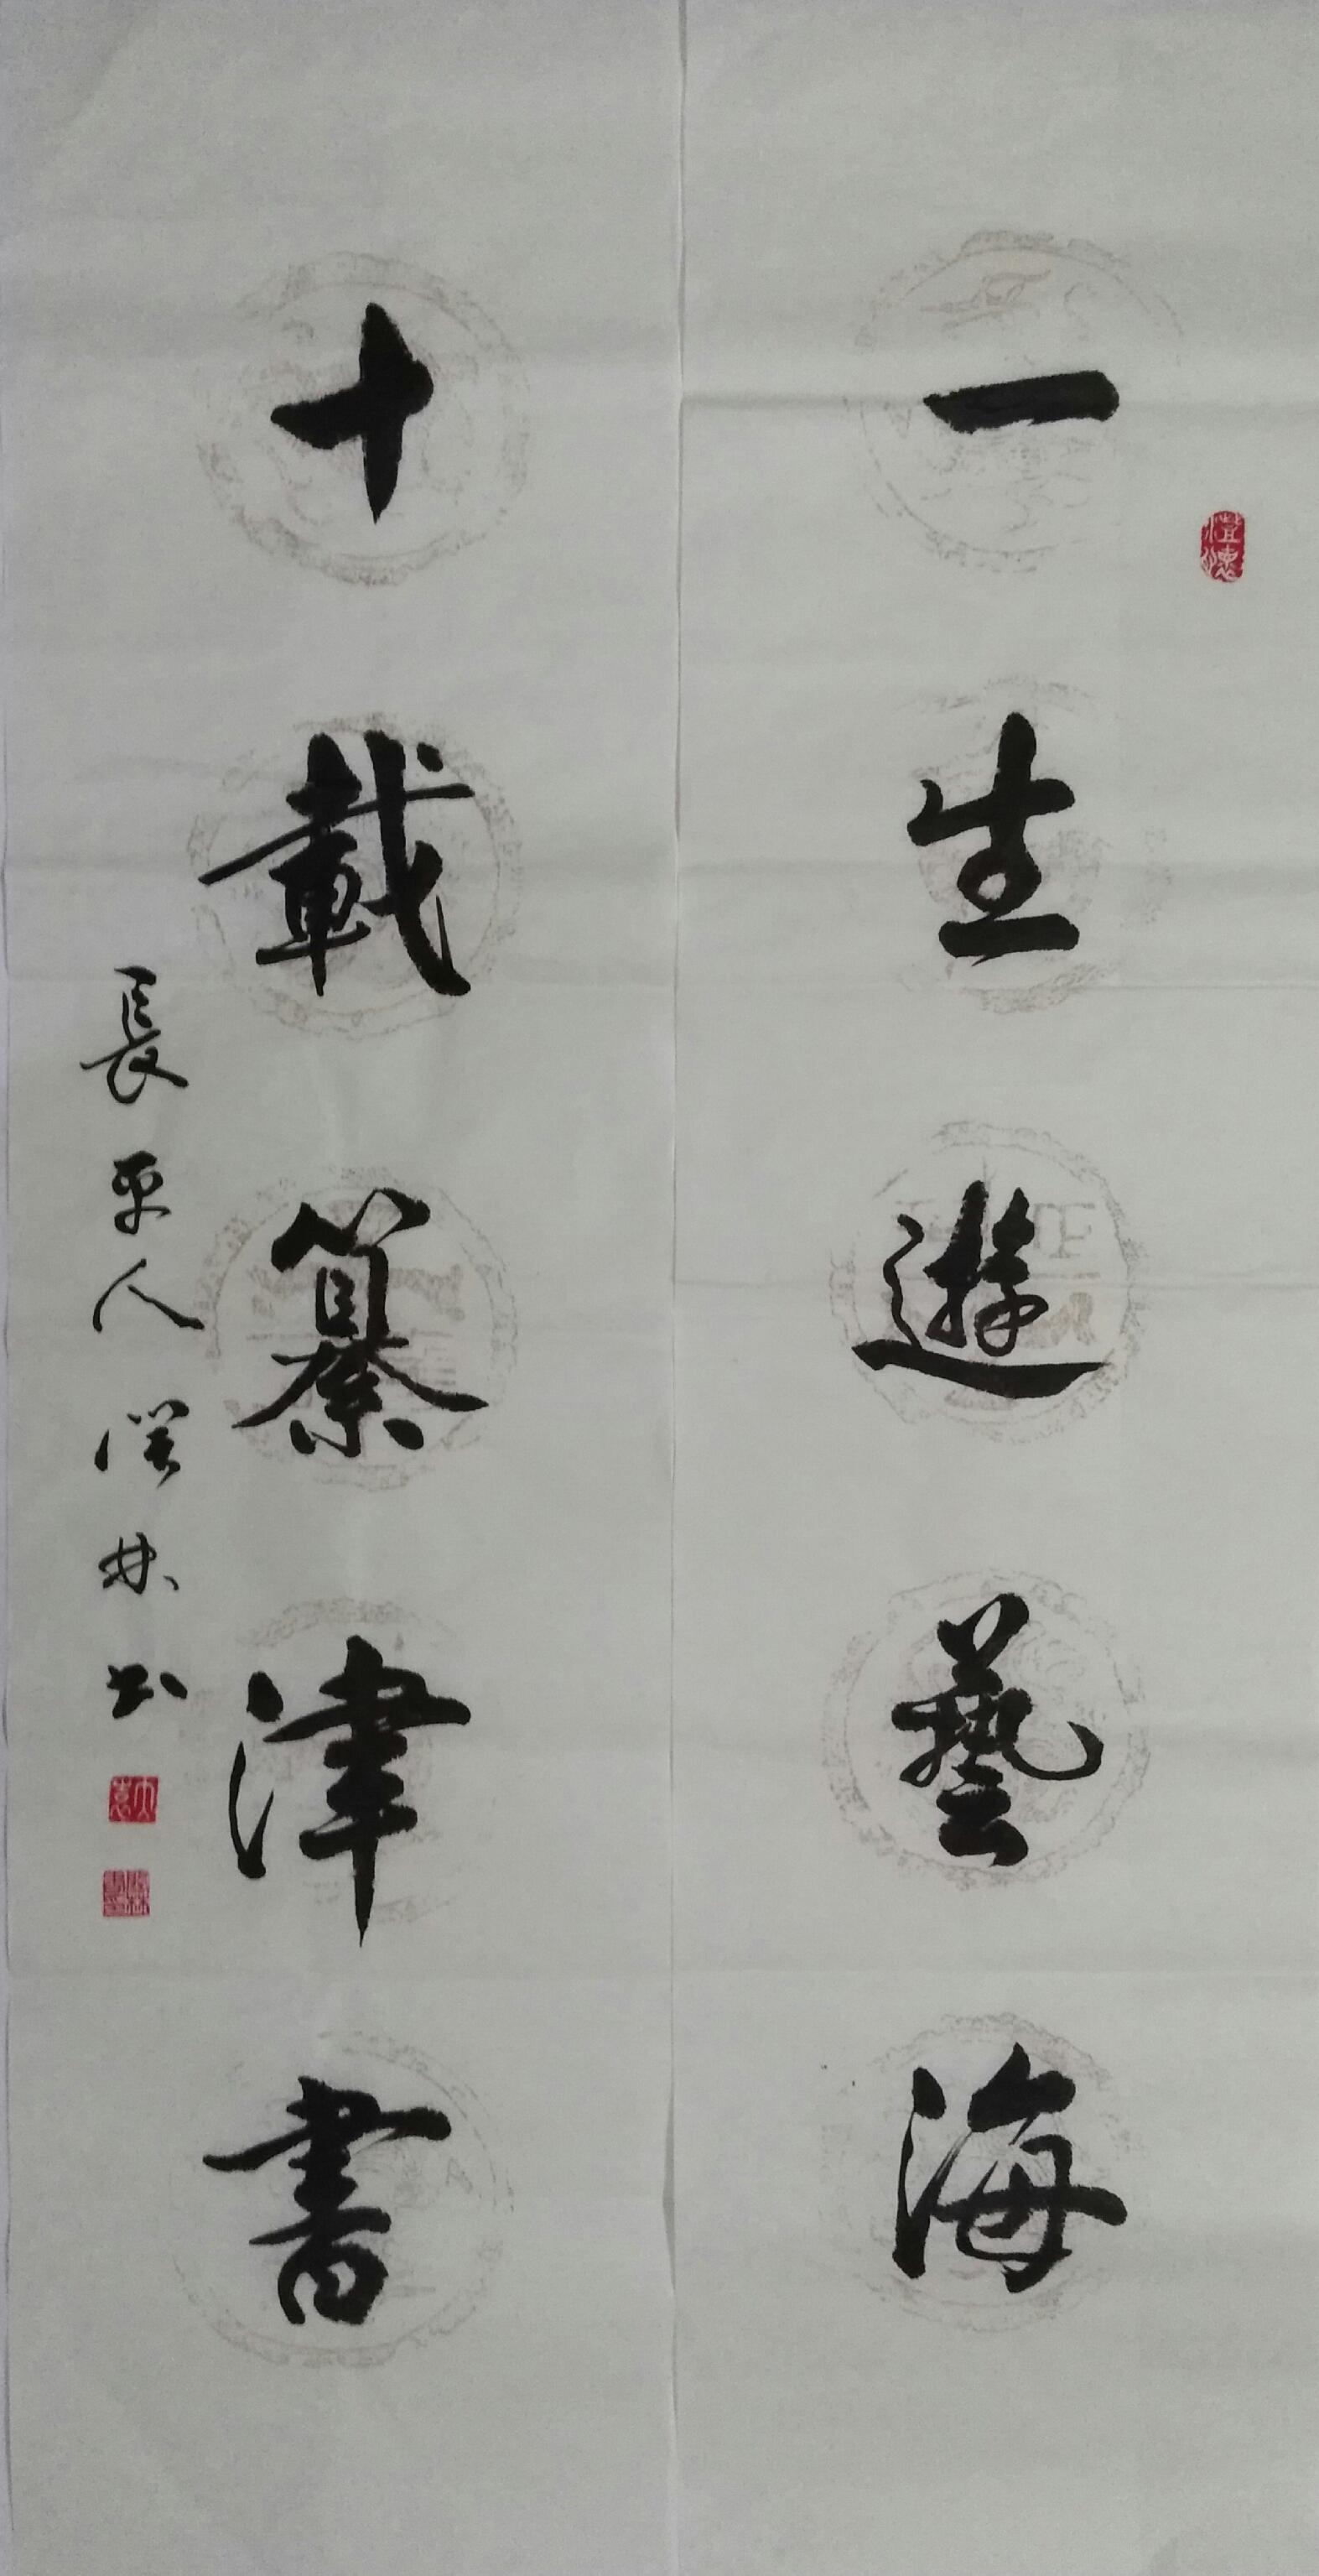 一生遊藝海
十載纂津書
長平人 林书